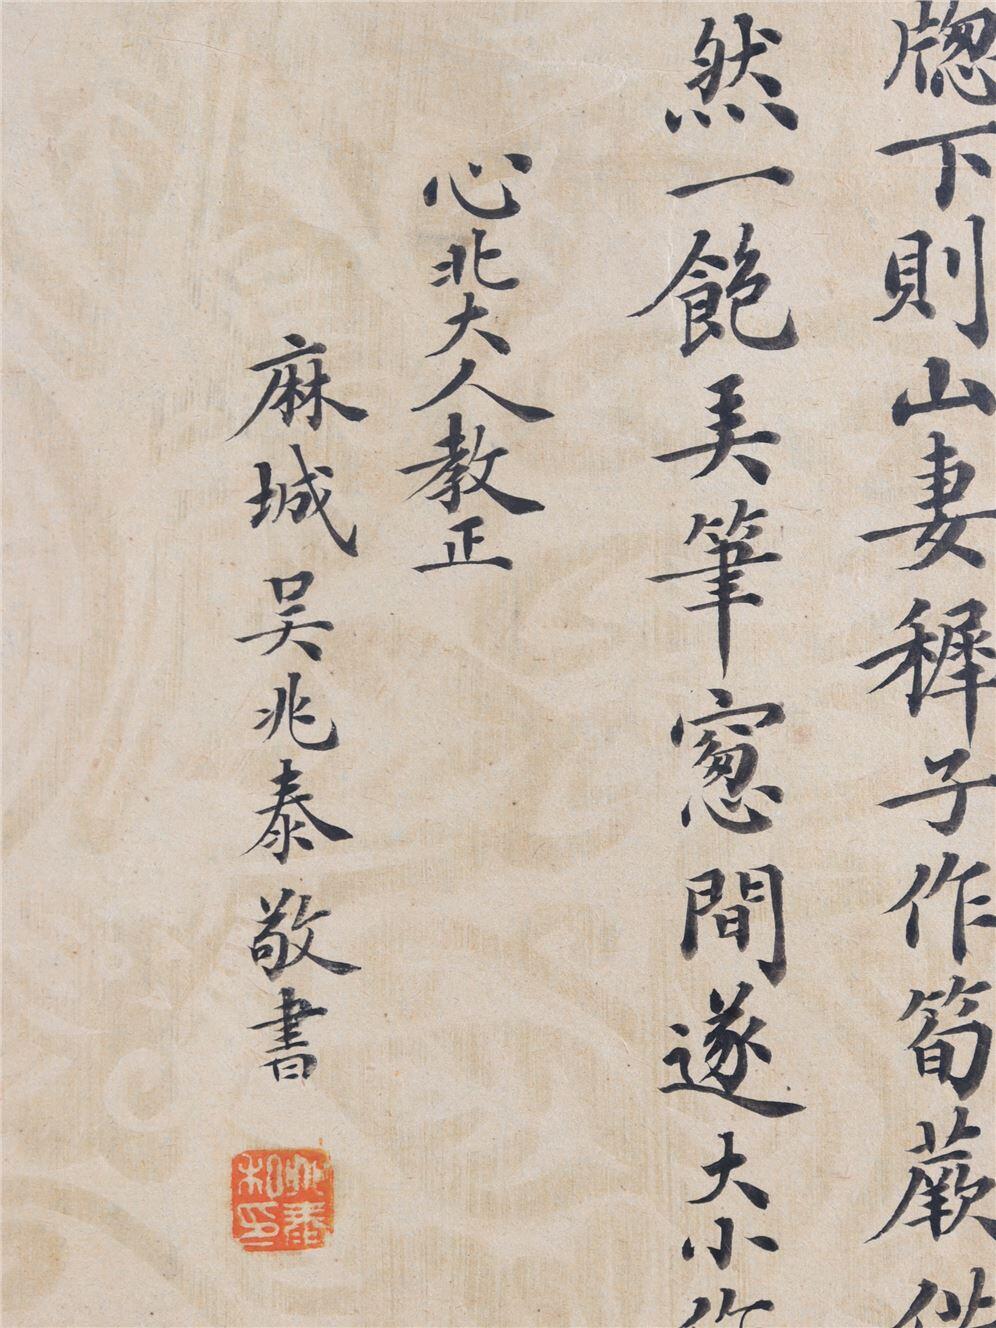 牕下則山妻穉子作筍蕨供
然一飽弄筆窻間遂大小作
心北大人教正
麻城吳兆泰敬書
兆泰私印